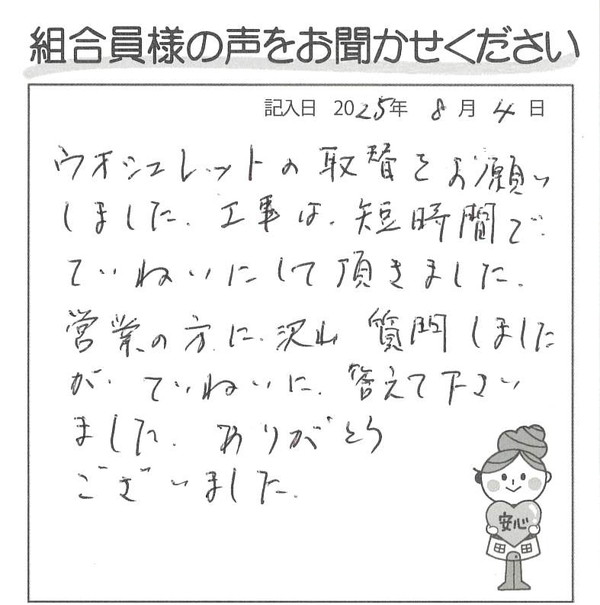 組合員様の声をお聞かせください
記入日 2025年 8月 4日
ウオシュレットの取替をお願い
しました。工事は、短時間で
ていねいにして頂きました。
営業の方に、沢山 質問しました
が、ていねいに、答えて下さい
ました。ありがとう
ございました。
安心